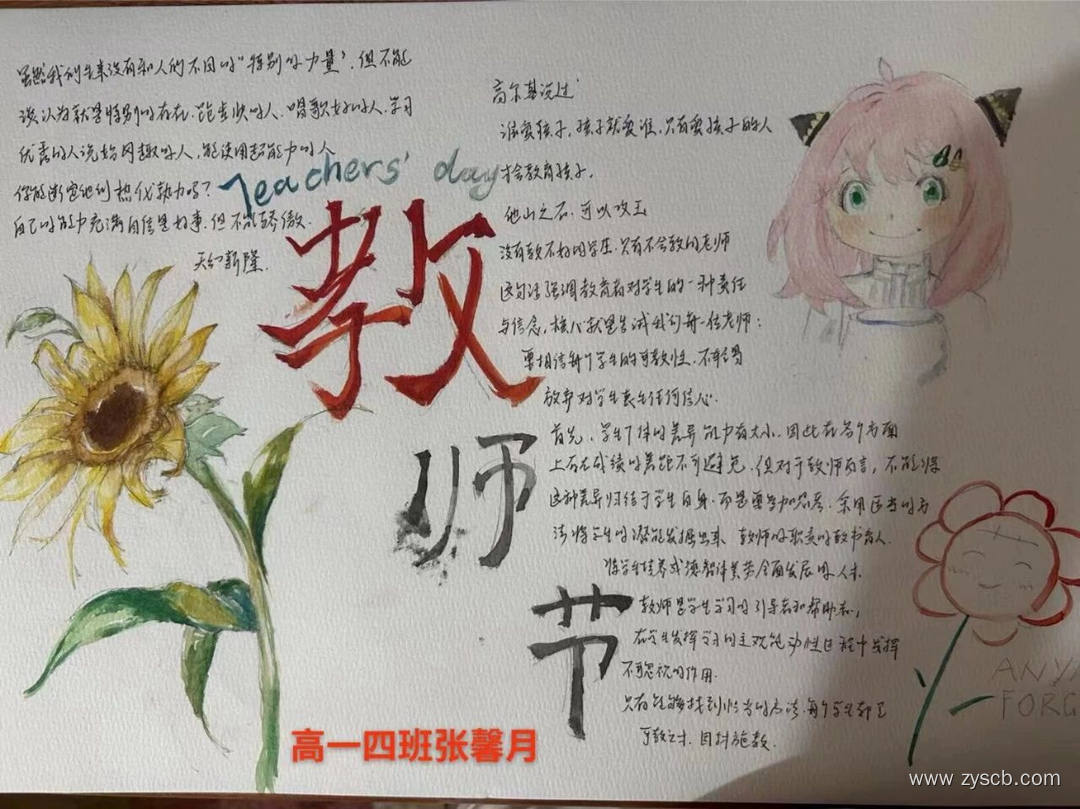 虽然我们生来没有和人们不同的“特别的力量”，但不能
误认为就是特别的存在．跑步快的人．唱歌好的人．学习
优秀的人说始风趣的人，能使用超能力的人
你能断定他们
自己的能力充满自信是好事．但不能骄傲．
Teachers' day
教
师
节
高尔基说过
谁爱孩子，孩子就爱谁，只有爱孩子的人
才会教育孩子，
他山之石，可以攻玉
没有教不好的学生，只有不会教的老师
这句话强调教育者对学生的一种责任
与信念，核心就是告诫我们每一任老师：
要相信每个学生的可教性，不轻易
放弃对学生丧失任何信心．
首先，学生个体的差异能力有大小．因此在各个方面
上存在成绩的差距不可避免．但对于教师而言，不能将
这种差异归结于学生自身．而是要多加思考．采用适当的方
法将学生的潜能发掘出来 教师的职责的教书育人．
将学生培养成德智体美劳全面发展的人才．
教师是学生学习的引导者和帮助者，
在学生发挥学习的主观能动性过程中发挥
不可忽视的作用．
只有能够找到恰当的方法每个学生都是
可教之才．因材施教．
ANYA
FORG
高一四班张馨月
www.zyscb.com